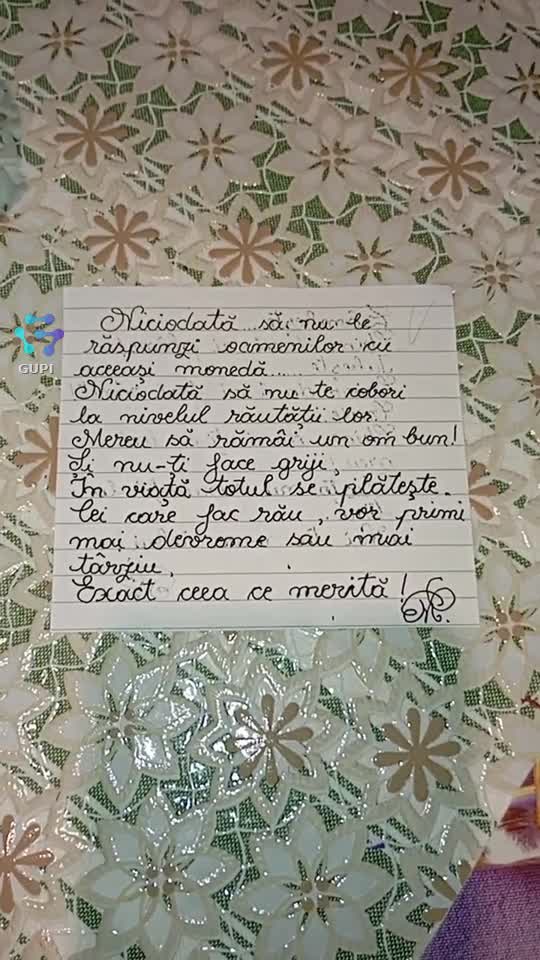 Niciodată să nu le
răspunzi oamenilor cu
aceeași monedă...
Niciodată să nu te cobori
la nivelul răutății lor.
Mereu să rămâi un om bun!
Și nu-ți face griji,
În viață totul se plătește.
Cei care fac rău, vor primi
mai devreme sau mai
târziu,
Exact ceea ce merită!
GUPI